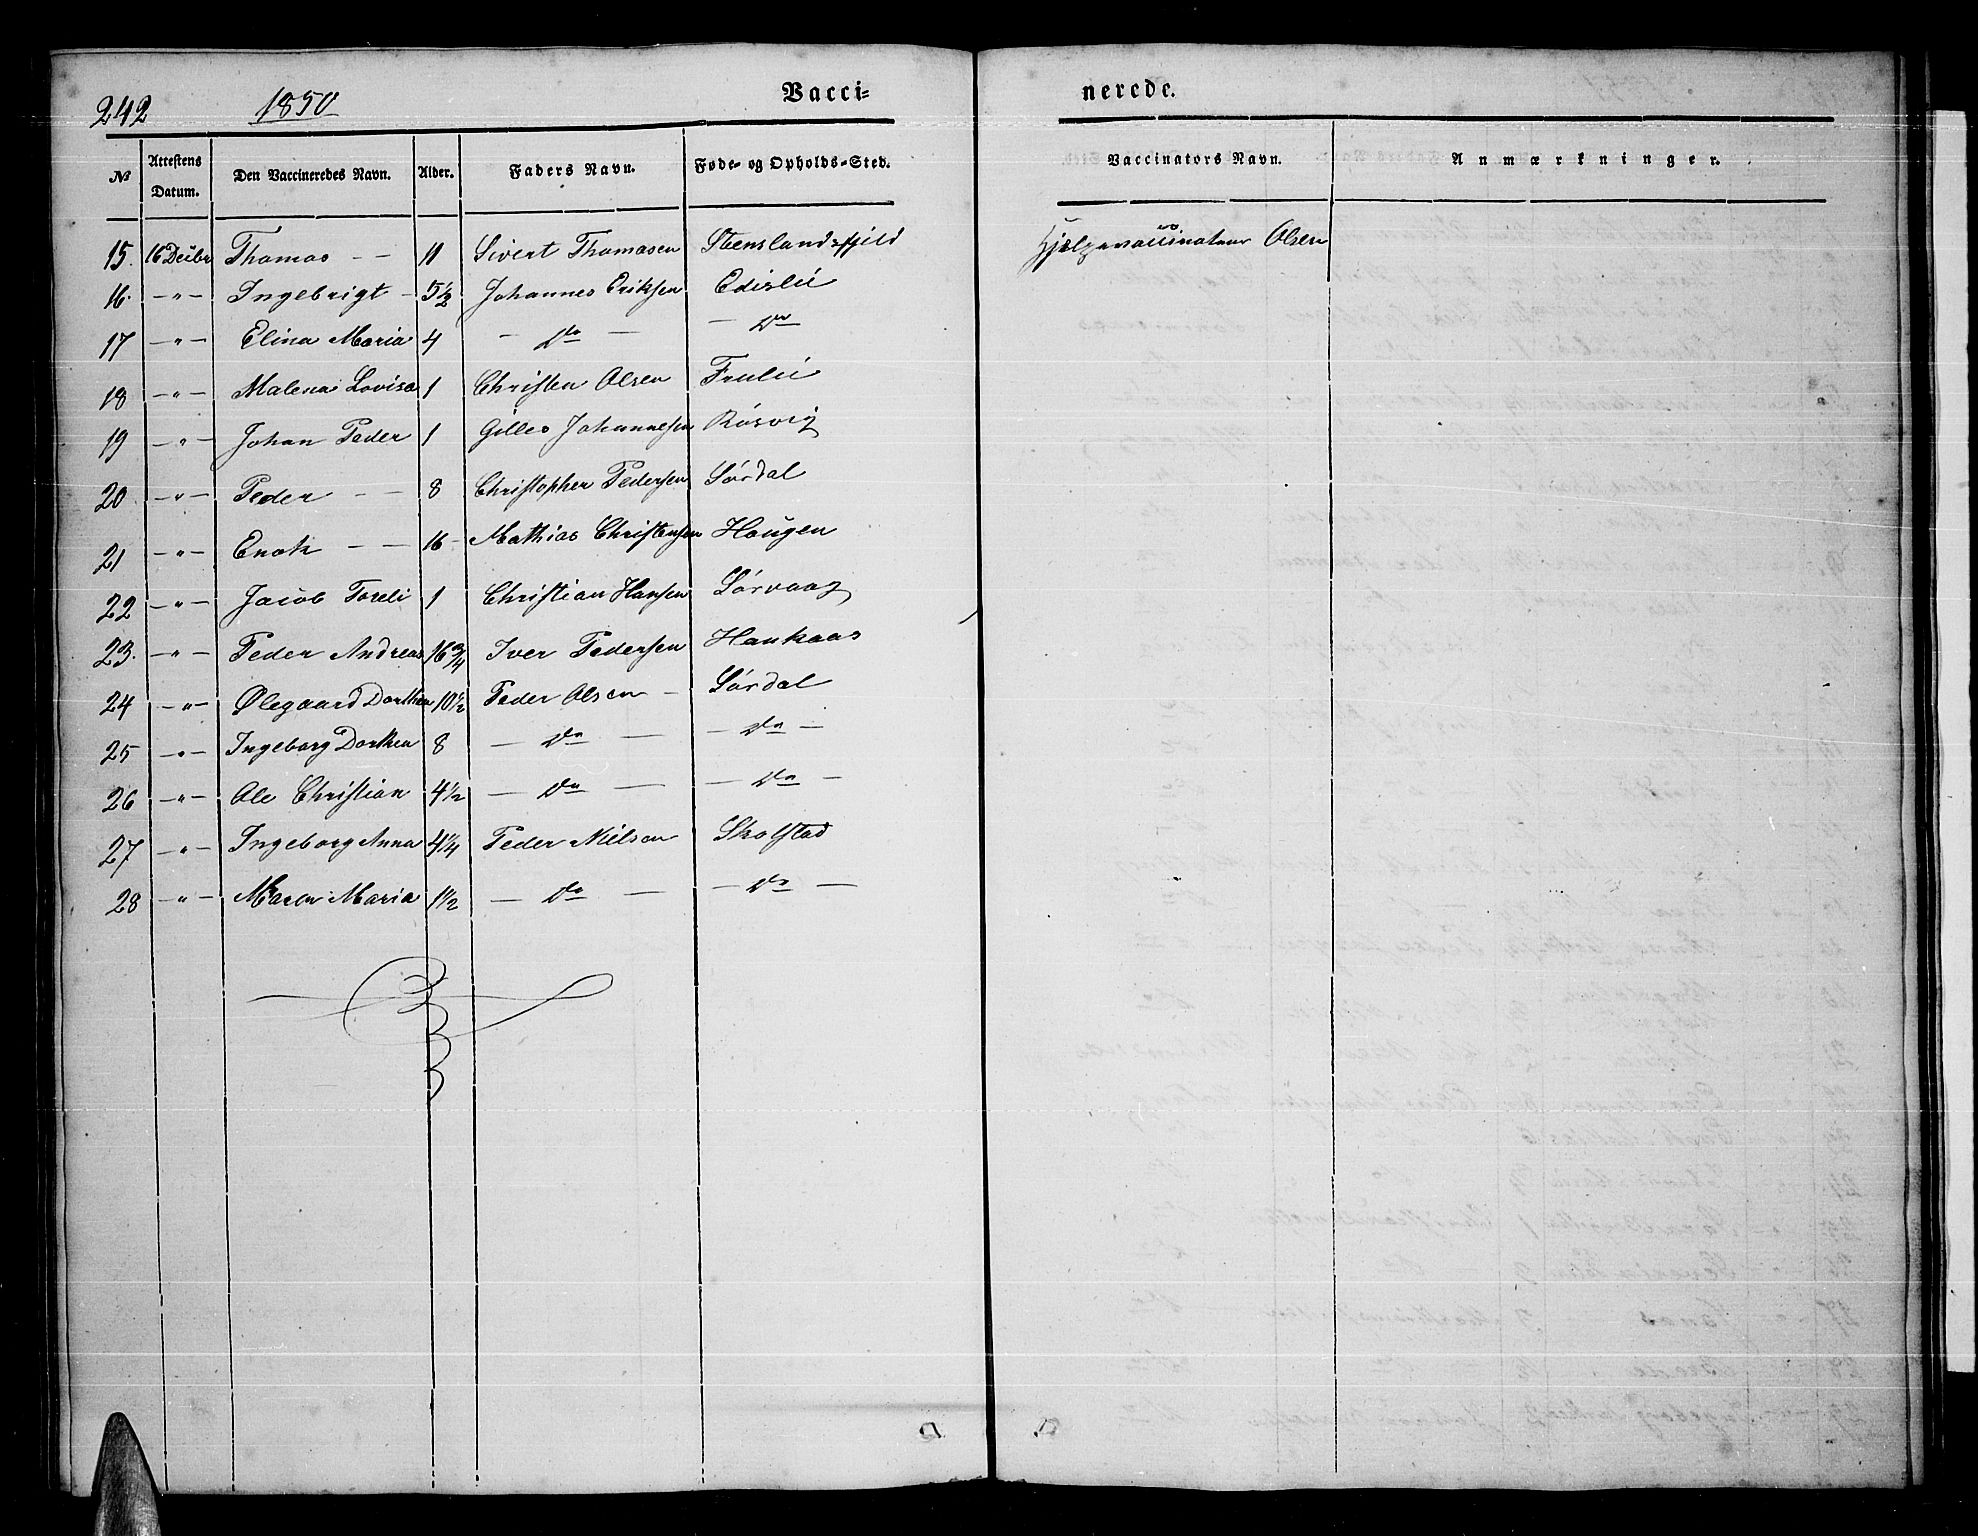 242 1850 Vacci= nerede.
№ Attestens Datum. Den Vaccineredes Navn. Alder. Faders Navn. Føde- og Opholds-Sted. Vaccinators Navn. Anmærkninger.
15. 16 Decbr Thomas — — 11 Sivert Thomasen Stenslandsfjeld Hjelpevaccinateur Olsen
16. — " — Ingebrigt — 5½ Johannes Eriksen Edislii
17 — " — Elina Maria 4 — Do — — Do
18 — " — Malena Lovisa 1 Christen Olsen
19 — " — Johan Peder 1 Gilles Johannesen Røsvig
20 — " — Peder — — 8 Christopher Pedersen Sørdal
21 — " — Enok — — 16 — Mathias Christensen Haugen
22 — " — Jacob Toreli 1 Christian Hansen Sørvaag
23. — " — Peder Andreas 16¾ Iver Pedersen Haukaas
24 — " — Ølegaard Dorthea 10½ Peder Olsen — Sørdal
25 — " — Ingeborg Dorthea 8 — Do — — Do —
26 — " — Ole Christian 4½ — Do — — Do —
27 — " — Ingeborg Anna 4¼ Peder Nielsen Skolstad
28 — " — Maren Maria 1½ — Do — — Do —